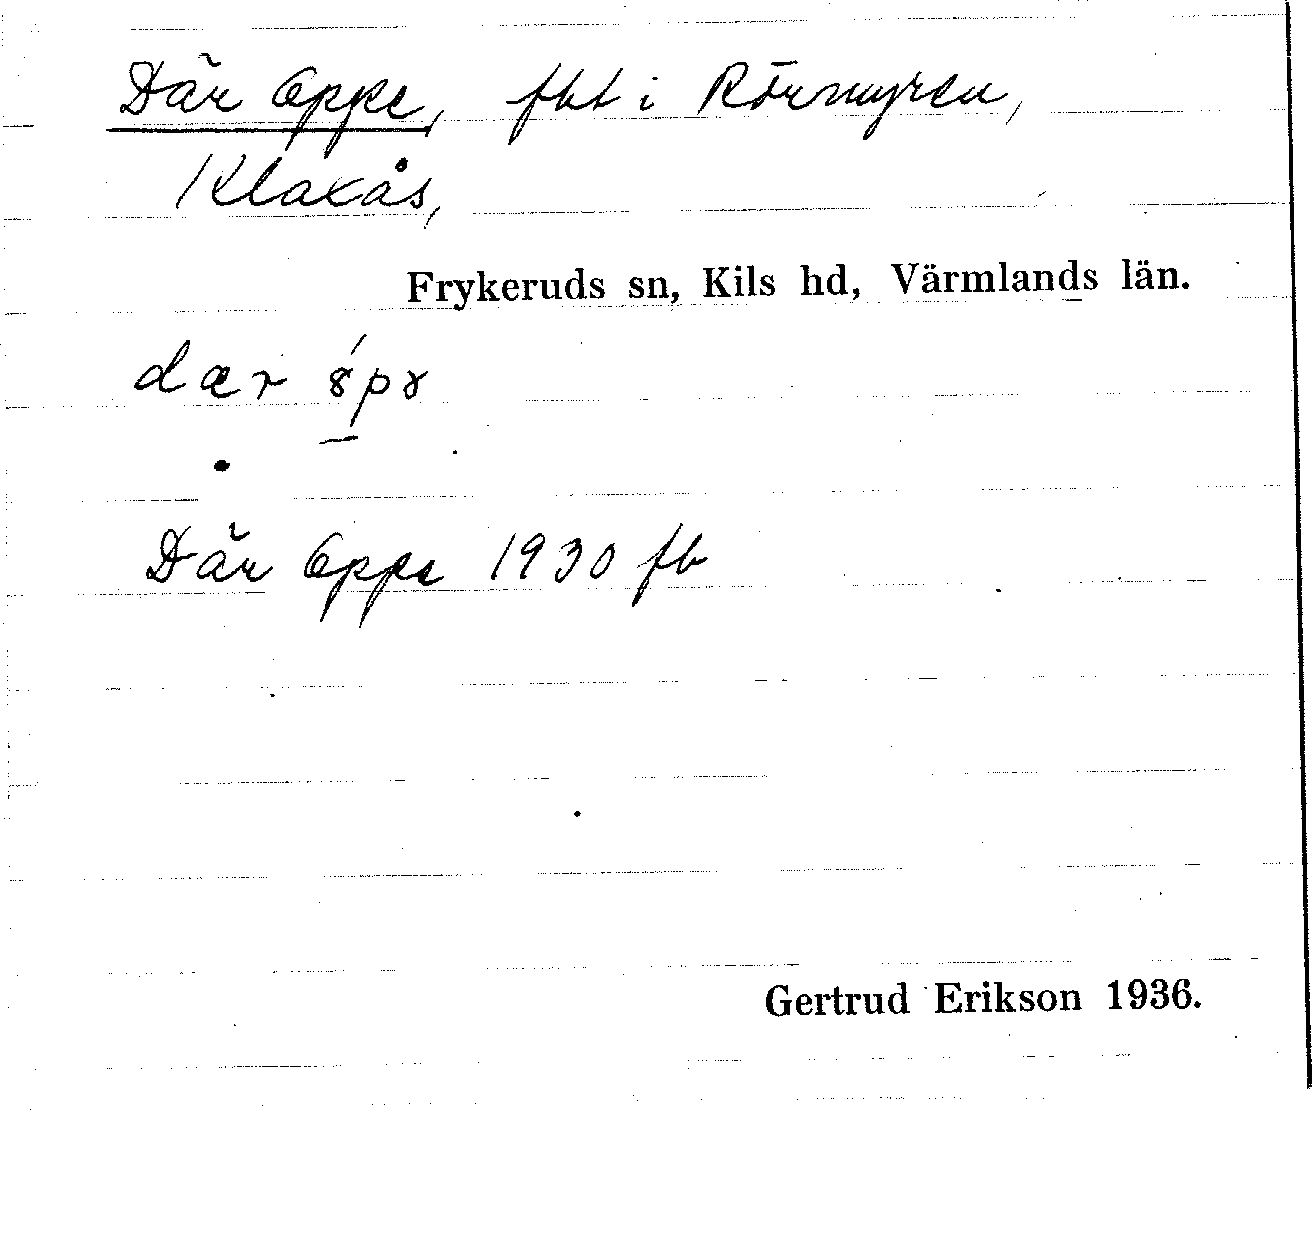 Där Oppe, fbt i Rörmyren,
Klaxås,
Frykeruds sn, Kils hd, Värmlands län.
dær
Där Oppe 1930 fb
Gertrud Erikson 1936.